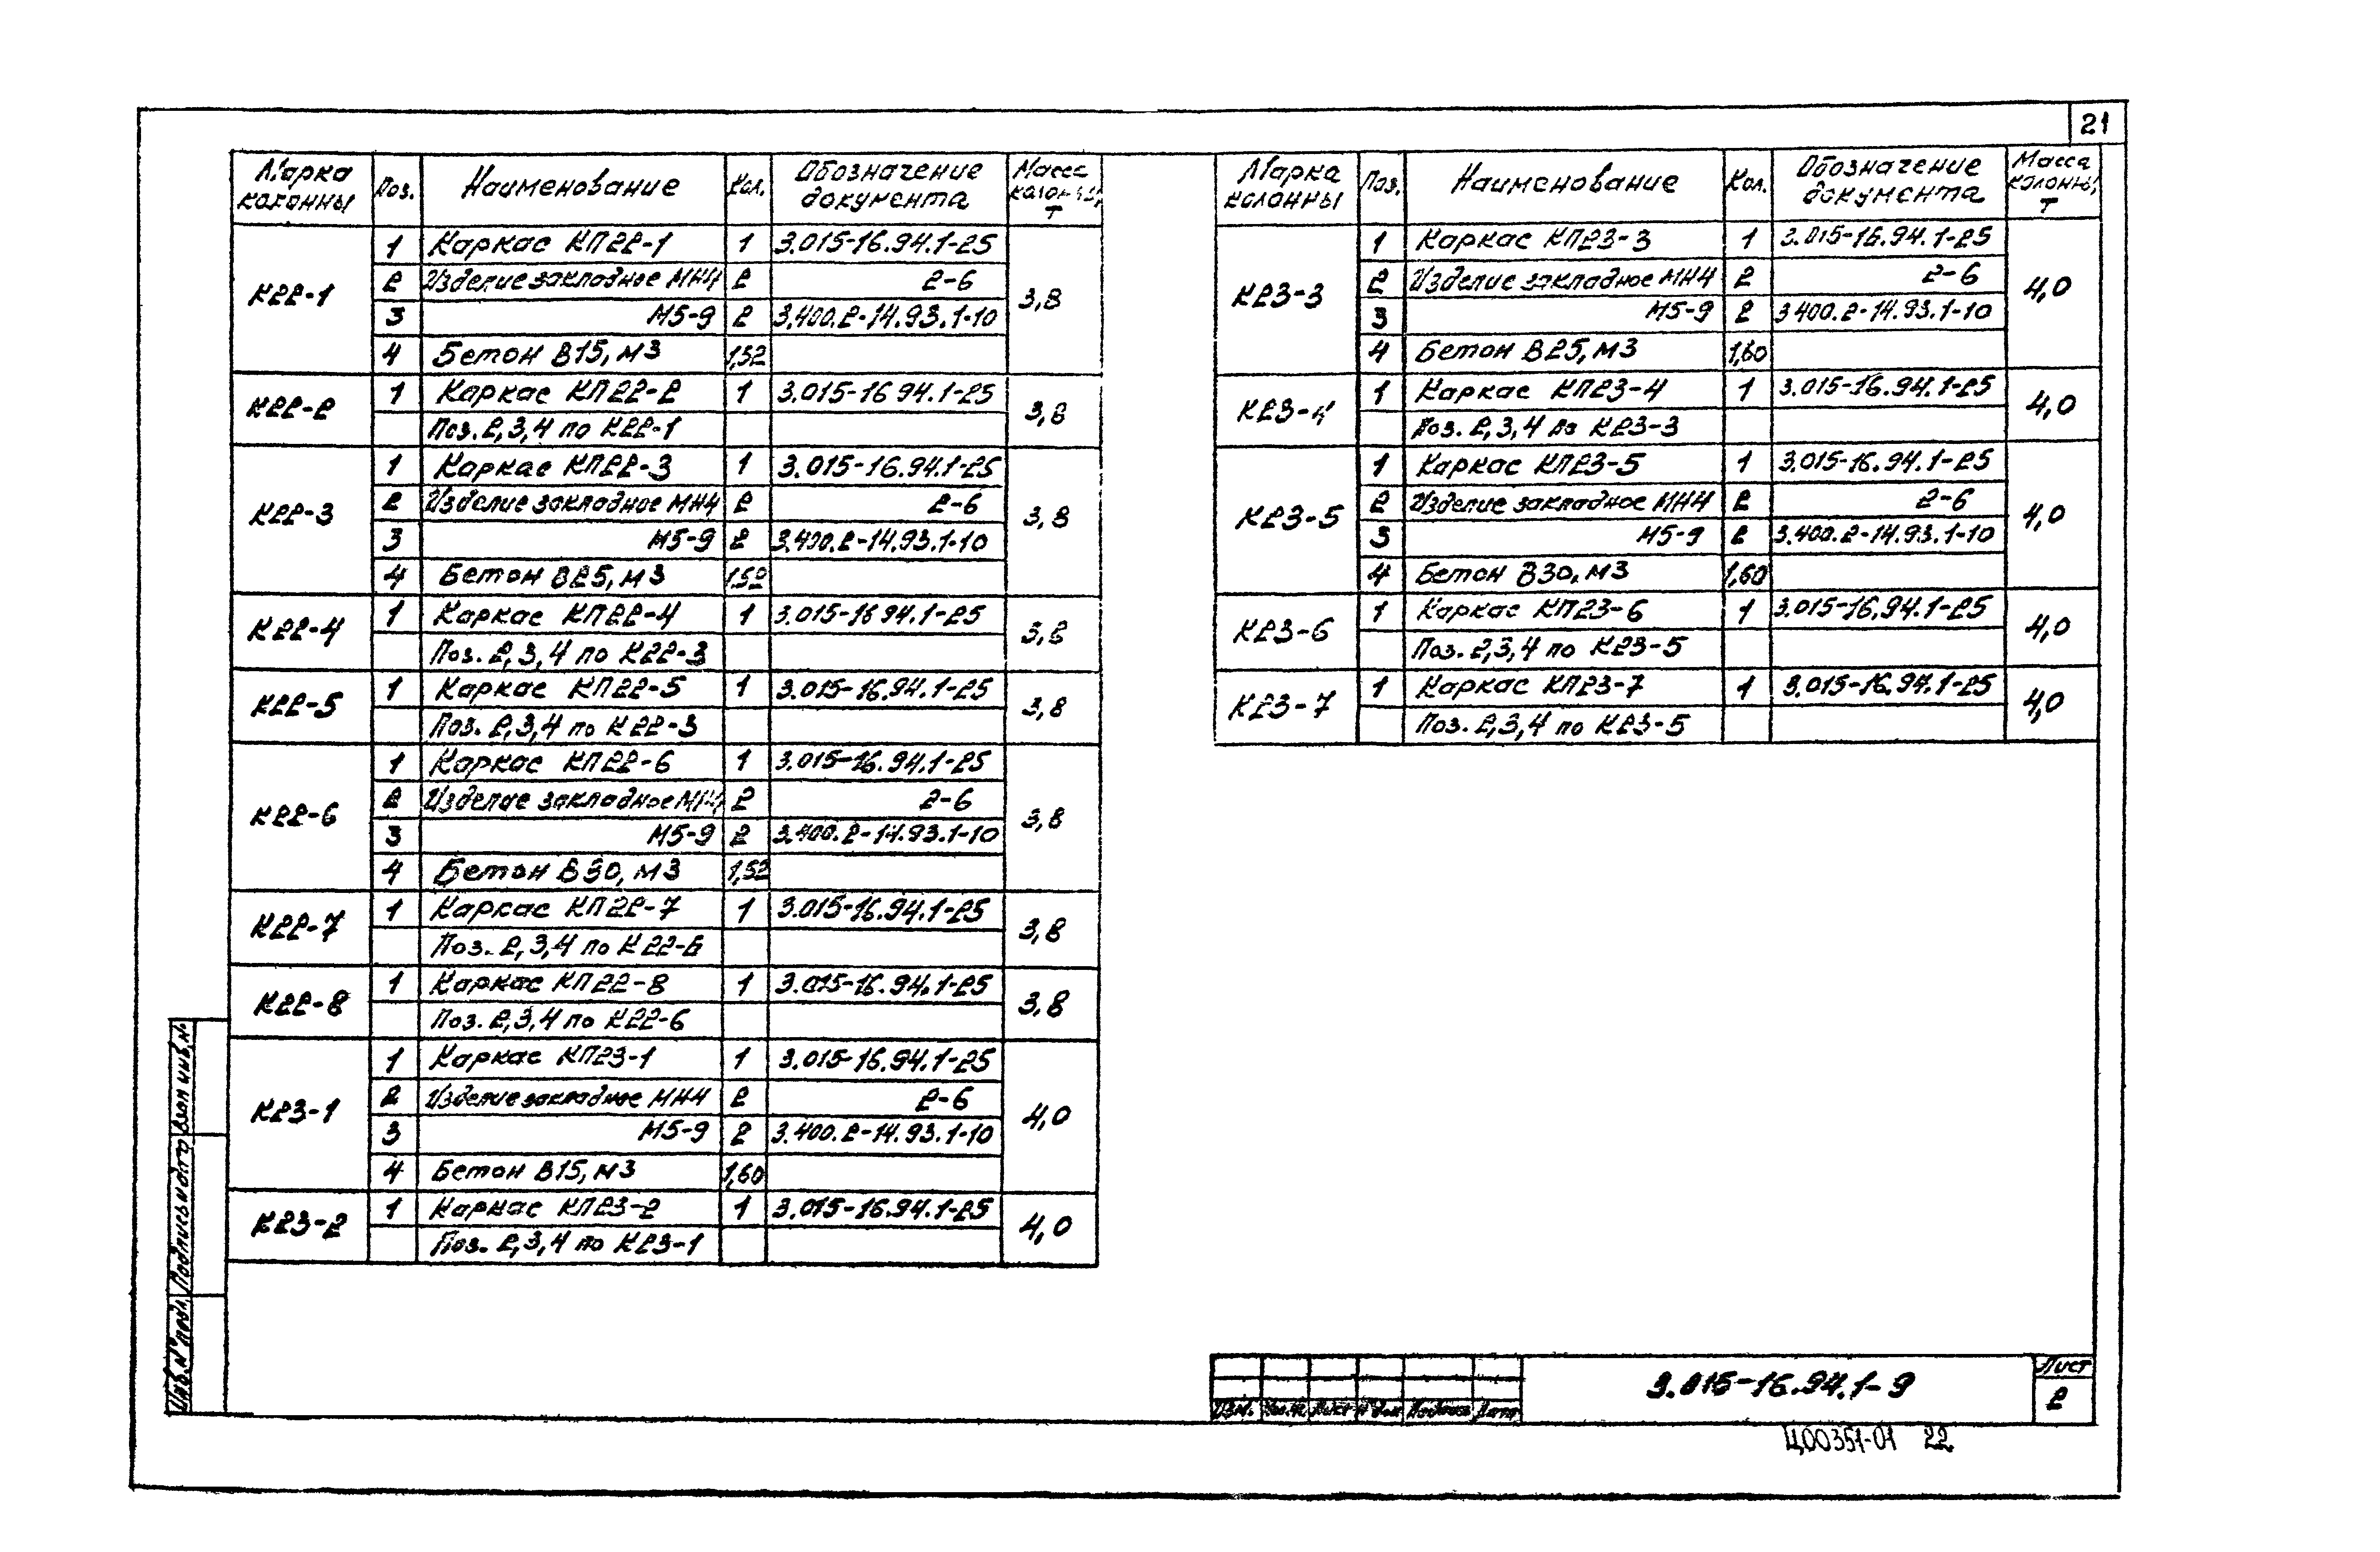 21
Марка колонны Поз. Наименование Кол. Обозначение документа Масса колонны, т
К22-1 1 Каркас КП22-1 1 3.015-16.94.1-25 3,8
2 Изделие закладное МН4 2 2-6
3 М5-9 2 3.400.2-14.93.1-10
4 Бетон В15, м3 1,52
К22-2 1 Каркас КП22-2 1 3.015-16 94.1-25 3,8
Поз. 2,3,4 по К22-1
К22-3 1 Каркас КП22-3 1 3.015-16.94.1-25 3,8
2 Изделие закладное МН4 2 2-6
3 М5-9 2 3.400.2-14.93.1-10
4 Бетон В25, м3 1,52
К22-4 1 Каркас КП22-4 1 3.015-16 94.1-25 3,8
Поз. 2,3,4 по К22-3
К22-5 1 Каркас КП22-5 1 3.015-16.94.1-25 3,8
Поз. 2,3,4 по К22-3
К22-6 1 Каркас КП22-6 1 3.015-16.94.1-25 3,8
2 Изделие закладное МН4 2 2-6
3 М5-9 2 3.400.2-14.93.1-10
4 Бетон В30, м3 1,52
К22-7 1 Каркас КП22-7 1 3.015-16.94.1-25 3,8
Поз. 2,3,4 по К22-6
К22-8 1 Каркас КП22-8 1 3.015-16.94.1-25 3,8
Поз. 2,3,4 по К22-6
К23-1 1 Каркас КП23-1 1 3.015-16.94.1-25 4,0
2 Изделие закладное МН4 2 2-6
3 М5-9 2 3.400.2-14.93.1-10
4 Бетон В15, м3 1,60
К23-2 1 Каркас КП23-2 1 3.015-16.94.1-25 4,0
Поз. 2,3,4 по К23-1
Марка колонны Поз. Наименование Кол. Обозначение документа Масса колонны, т
К23-3 1 Каркас КП23-3 1 3.015-16.94.1-25 4,0
2 Изделие закладное МН4 2 2-6
3 М5-9 2 3 400.2-14.93.1-10
4 Бетон В25, м3 1,60
К23-4 1 Каркас КП23-4 1 3.015-16.94.1-25 4,0
Поз. 2,3,4 по К23-3
К23-5 1 Каркас КП23-5 1 3.015-16.94.1-25 4,0
2 Изделие закладное МН4 2 2-6
3 М5-9 2 3.400.2-14.93.1-10
4 Бетон В30, м3 1,60
К23-6 1 Каркас КП23-6 1 3.015-16.94.1-25 4,0
Поз. 2,3,4 по К23-5
К23-7 1 Каркас КП23-7 1 3.015-16.94.1-25 4,0
Поз. 2,3,4 по К23-5
Инв. № подл. Подпись и дата Взам инв. №
Изм. Кол.уч Лист № док Подпись Дата
3.015-16.94.1-9
Лист
2
Ц00351-01 22